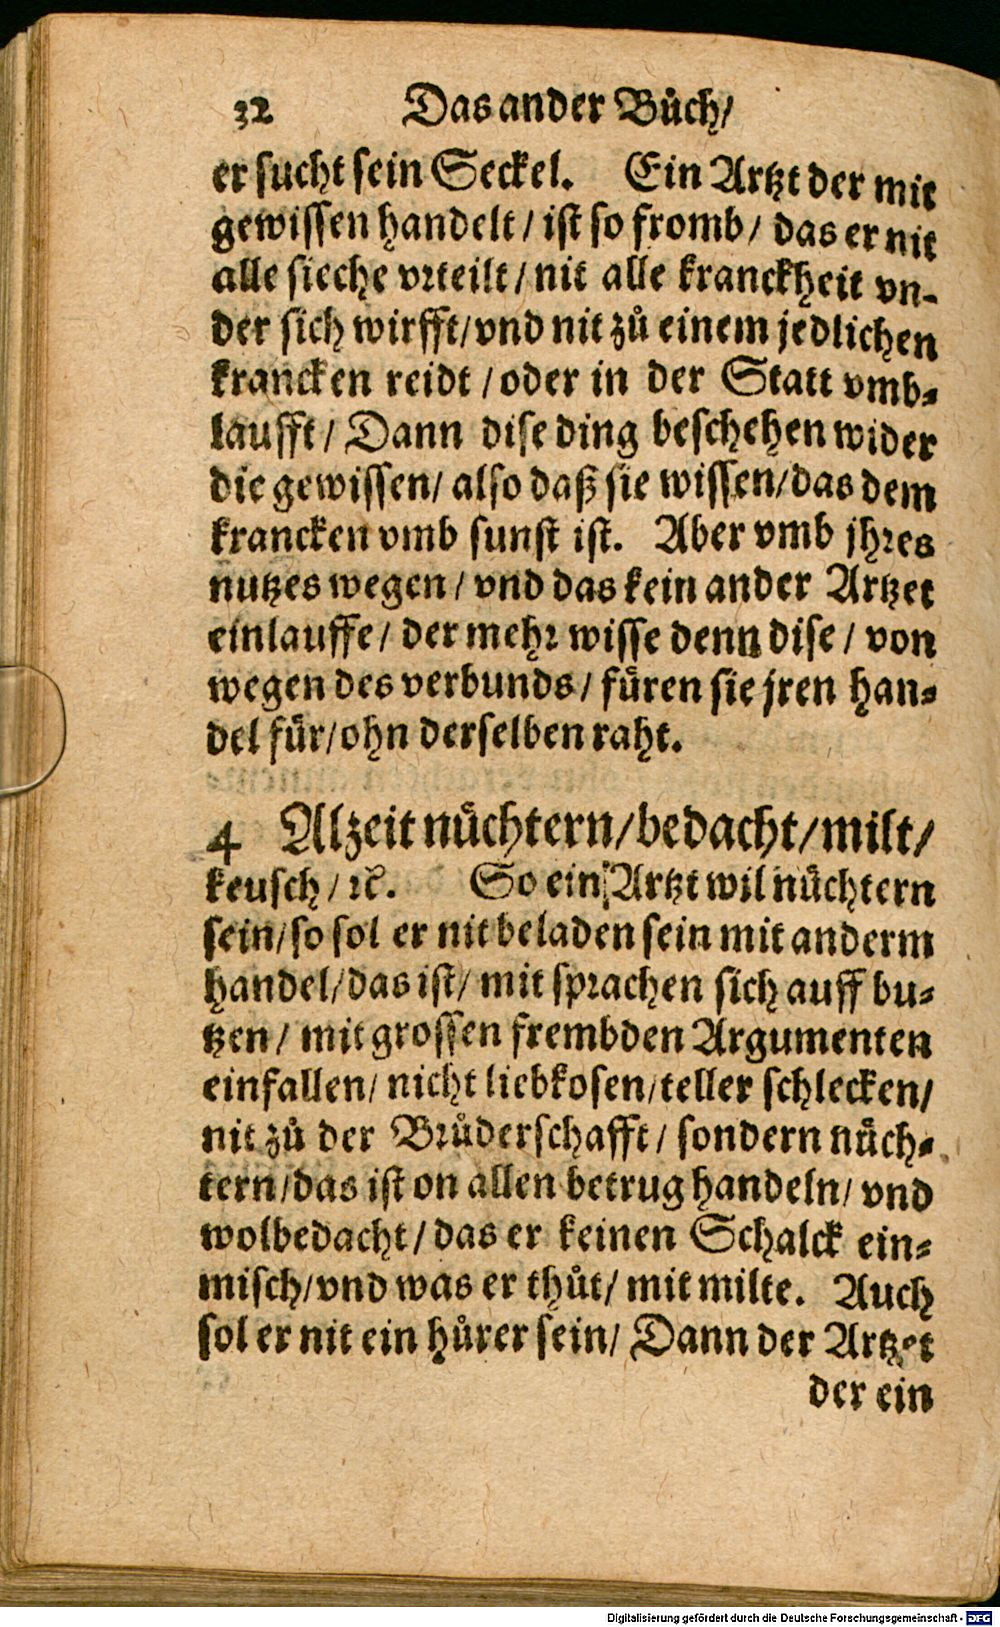 32 Das ander Bůch/
er sucht sein Seckel. Ein Artzt der mit
gewissen handelt / ist so fromb / das er nit
alle sieche vrteilt / nit alle kranckheit vn-
der sich wirfft/vnd nit zů einem jedlichen
krancken reidt / oder in der Statt vmb-
laufft / Dann dise ding beschehen wider
die gewissen/ also daß sie wissen/das dem
krancken vmb sunst ist. Aber vmb jhres
nutzes wegen / vnd das kein ander Artzet
einlauffe/ der mehr wisse denn dise / von
wegen des verbunds / fůren sie jren han-
del für/ohn derselben raht.
4 Alzeit nůchtern/bedacht/milt/
keusch / ꝛc. So ein Artzt wil nůchtern
sein/so sol er nit beladen sein mit anderm
handel/das ist/ mit sprachen sich auff bu-
tzen / mit grossen frembden Argumenten
einfallen/ nicht liebkosen/teller schlecken/
nit zů der Brůderschafft / sondern nůch-
tern/das ist on allen betrug handeln/ vnd
wolbedacht / das er keinen Schalck ein-
misch/vnd was er thůt/ mit milte. Auch
sol er nit ein hůrer sein/ Dann der Artzet
der ein
Digitalisierung gefördert durch die Deutsche Forschungsgemeinschaft - DFG